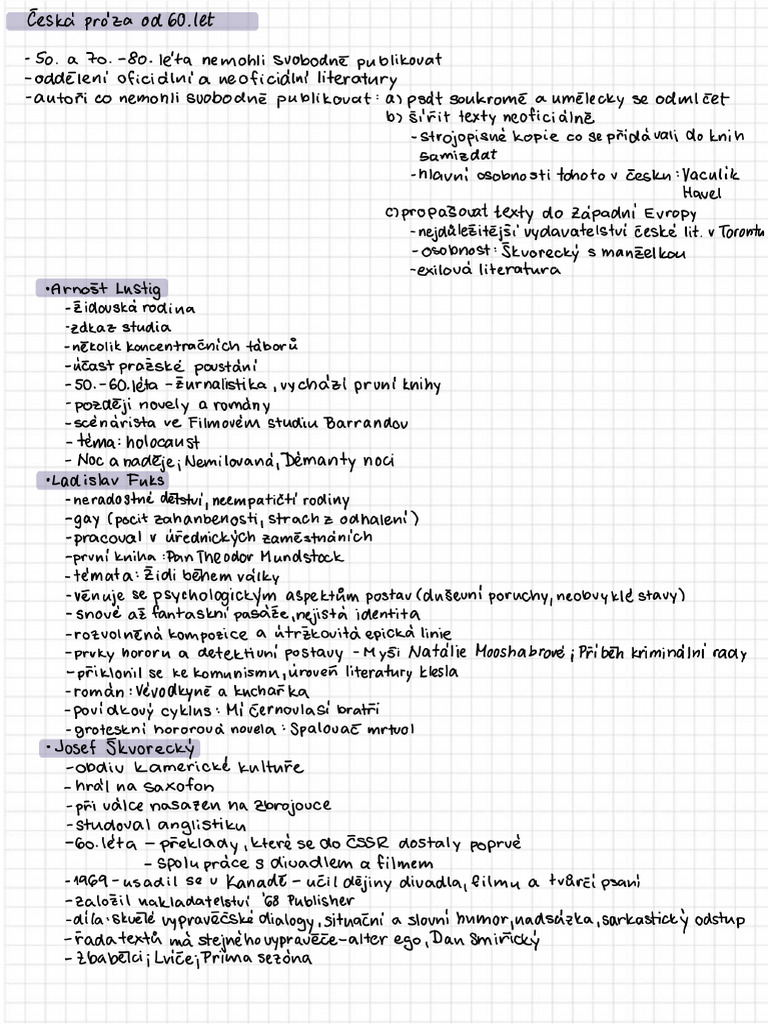 Česká próza od 60. let
- 50. a 70. -80. léta nemohli svobodně publikovat
- oddělení oficiální a neoficiální literatury
- autoři co nemohli svobodně publikovat: a) psát soukromě a umělecky se odmlčet
b) šířit texty neoficiálně
- strojopisné kopie co se přidávali do knih
samizdat
- hlavní osobnosti tohoto v česku: Vaculík
Havel
c) propašovat texty do západní Evropy
- nejdůležitější vydavatelství české lit. v Torontu
- osobnost: Škvorecký s manželkou
- exilová literatura
• Arnošt Lustig
- židovská rodina
- zákaz studia
- několik koncentračních táborů
- účast pražské povstání
- 50. - 60. léta - žurnalistika, vychází první knihy
- později novely a romány
- scénárista ve Filmovém studiu Barrandov
- téma: holocaust
- Noc a naděje; Nemilovaná, Démanty noci
• Ladislav Fuks
- neradostné dětství, neempatičtí rodiny
- gay (pocit zahanbenosti, strach z odhalení)
- pracoval v úřednických zaměstnáních
- první kniha: Pan Theodor Mundstock
- témata: Židi během války
- věnuje se psychologickým aspektům postav (duševní poruchy, neobvyklé stavy)
- snové až fantaskní pasáže, nejistá identita
- rozvolněná kompozice a útržkovitá epická linie
- prvky hororu a detektivní postavy - Myši Natálie Mooshabrové; Příběh kriminální rady
- přiklonil se ke komunismu, úroveň literatury klesla
- román: Vévodkyně a kuchařka
- povídkový cyklus: Mí černovlasí bratři
- groteskní hororová novela: Spalovač mrtvol
• Josef Škvorecký
- obdiv k americké kultuře
- hrál na saxofon
- při válce nasazen na zbrojovce
- studoval anglistiku
- 60. léta - překlady, které se do ČSSR dostaly poprvé
- spolupráce s divadlem a filmem
- 1969 - usadil se v Kanadě - učil dějiny divadla, filmu a tvůrčí psaní
- založil nakladatelství '68 Publisher
- díla: skvělé vypravěčské dialogy, situační a slovní humor, nadsázka, sarkastický odstup
- řada textů má stejného vypravěče - alter ego, Dan Smiřický
- Zbabělci; Lvíče; Prima sezóna